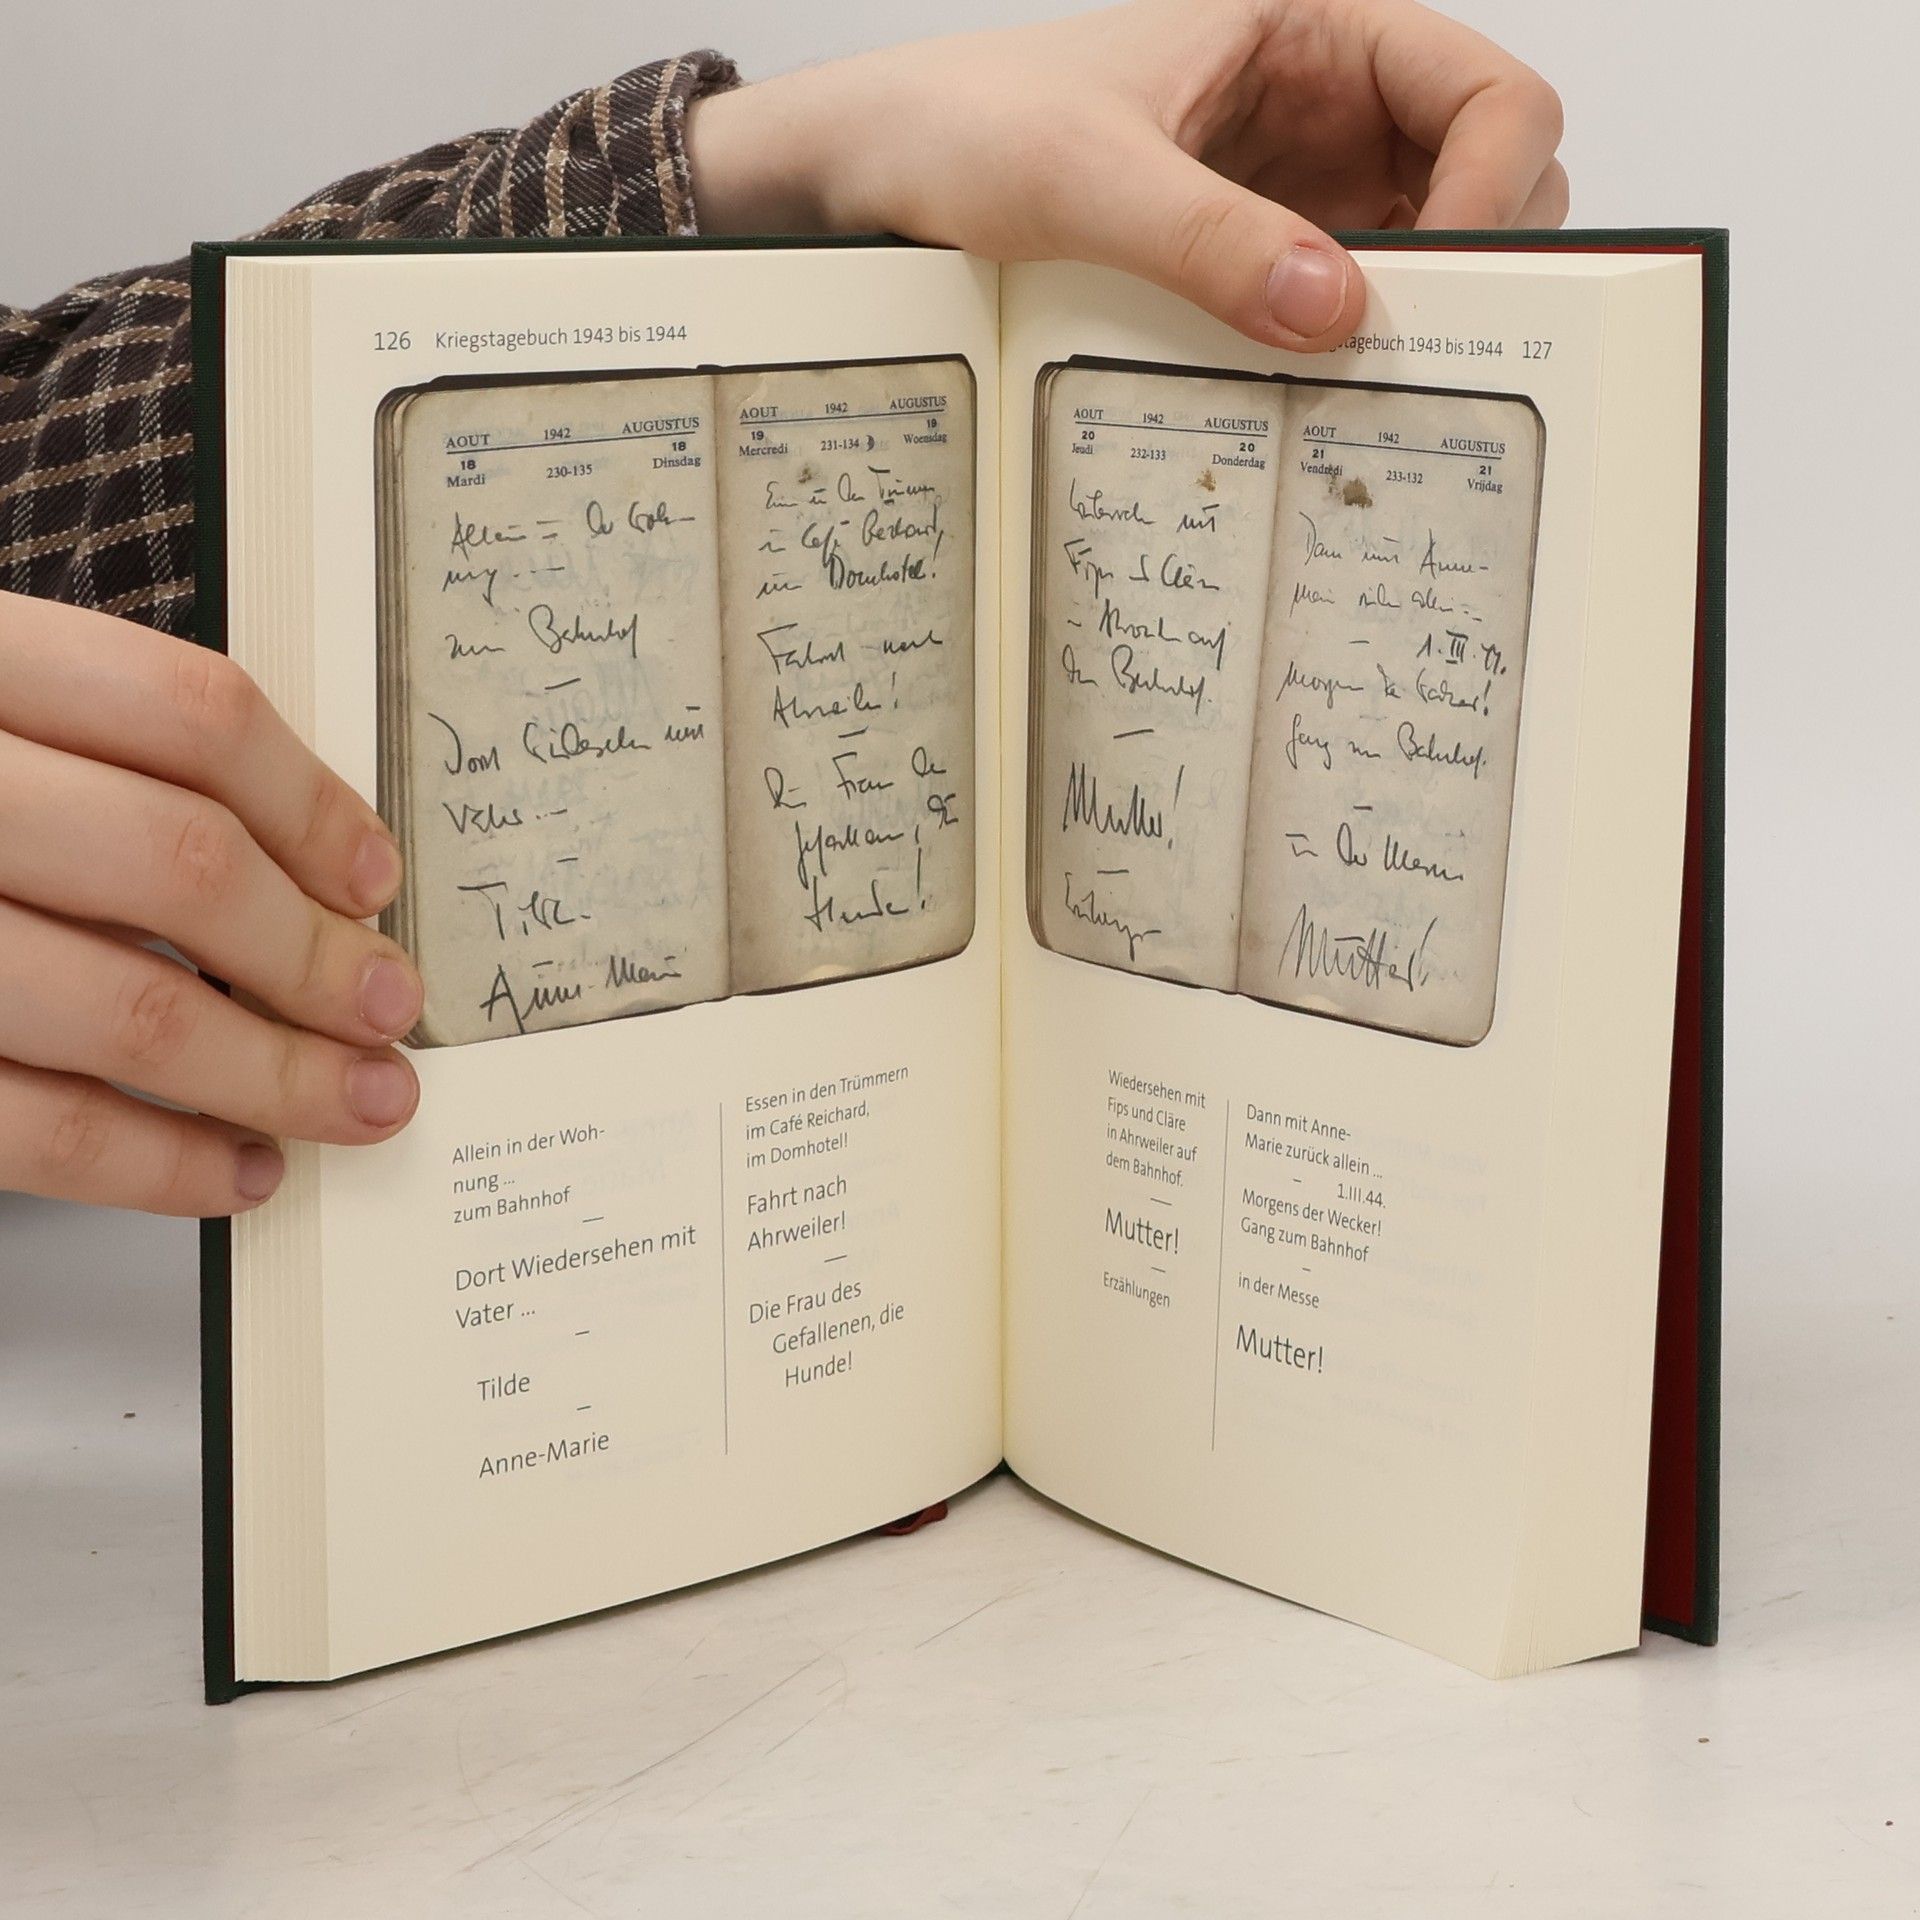 126 Kriegstagebuch 1943 bis 1944
AOUT 1942 AUGUSTUS
18 18
Mardi 230-135 Dinsdag
Allein in der Woh-
nung ...
zum Bahnhof
—
Dort Wiedersehen mit
Vater ...
—
Tilde
Anne-Marie
AOUT 1942 AUGUSTUS
19 19
Mercredi 231-134 Woensdag
Essen in den Trümmern
im Café Reichard,
im Domhotel!
Fahrt nach
Ahrweiler!
—
Die Frau des
Gefallenen, die
Hunde!
Allein in der Woh-
nung ...
zum Bahnhof
—
Dort Wiedersehen mit
Vater ...
–
Tilde
–
Anne-Marie
Essen in den Trümmern
im Café Reichard,
im Domhotel!
Fahrt nach
Ahrweiler!
—
Die Frau des
Gefallenen, die
Hunde!
gstagebuch 1943 bis 1944 127
AOUT 1942 AUGUSTUS
20 20
Jeudi 232-133 Donderdag
Wiedersehen mit
Fips u Cläre
in Ahrweiler auf
dem Bahnhof.
—
Mutter!
—
Erzählungen
AOUT 1942 AUGUSTUS
21 21
Vendredi 233-132 Vrijdag
Dann mit Anne-
Marie zurück allein ...
– 1.III.44.
Morgens der Wecker!
Gang zum Bahnhof.
–
in der Messe
Mutter!
Wiedersehen mit
Fips und Cläre
in Ahrweiler auf
dem Bahnhof.
—
Mutter!
–
Erzählungen
Dann mit Anne-
Marie zurück allein ...
– 1.III.44.
Morgens der Wecker!
Gang zum Bahnhof
–
in der Messe
Mutter!